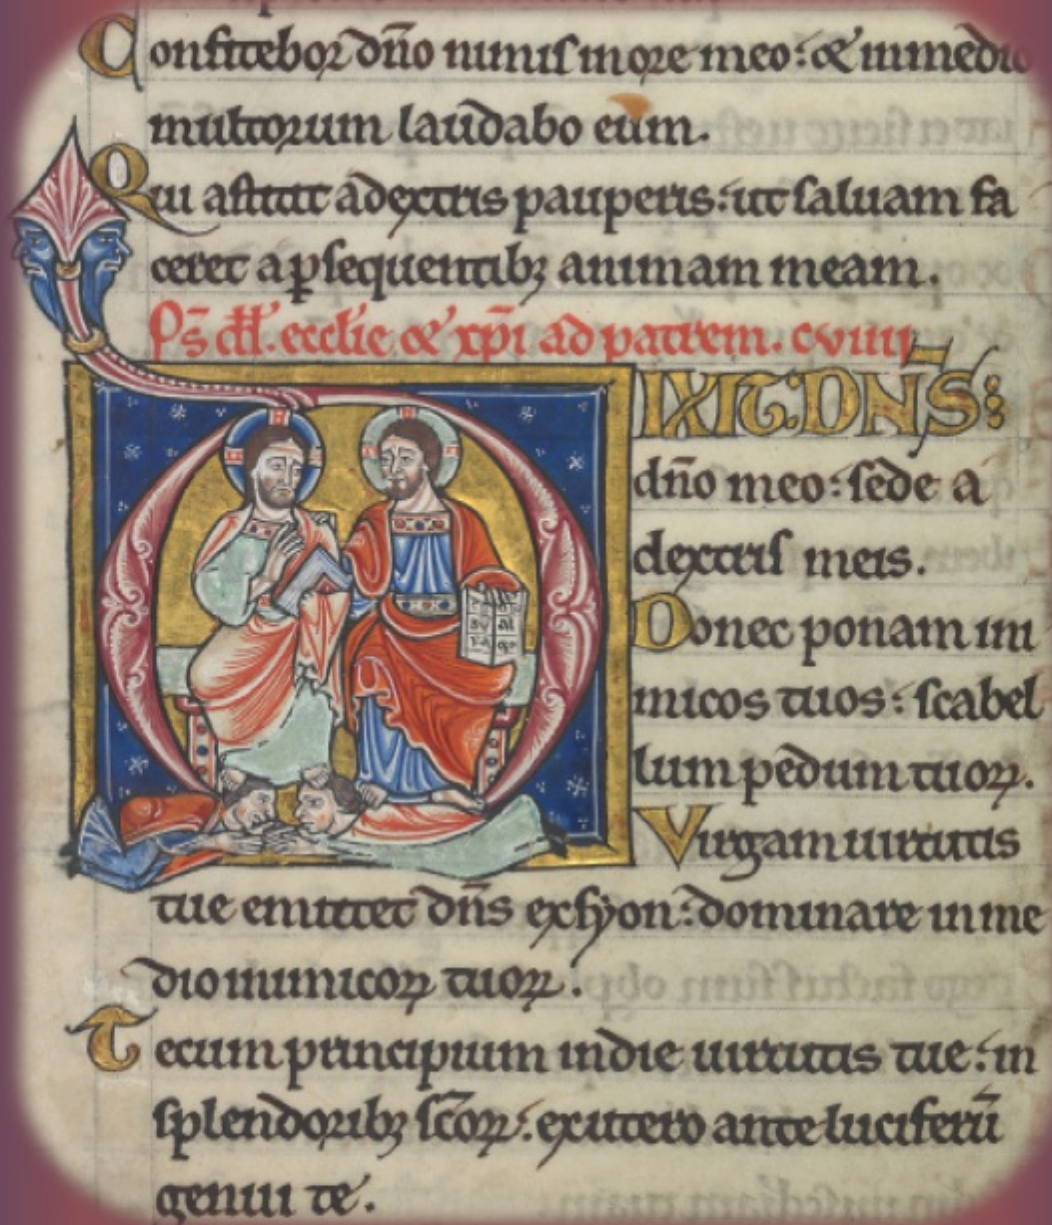 Confitebor dño nimis in ore meo: & in medio
multorum laudabo eum.
Qui astitit a dextris pauperis: ut saluam fa
ceret a ꝑsequentibꝫ animam meam.
ecclie & xp̄i ad patrem. cviiii
DIXIT: DN̄S:
dño meo: sede a
dextris meis.
Donec ponam ini
micos tuos: scabel
lum pedum tuoꝝ.
Virgam uirtutis
tue emittet dñs ex syon: dominare in me
dio inimicoꝝ tuoꝝ.
Tecum principium in die uirtutis tue: in
splendoribꝫ sc̄oꝝ: ex utero ante luciferū
genui te.